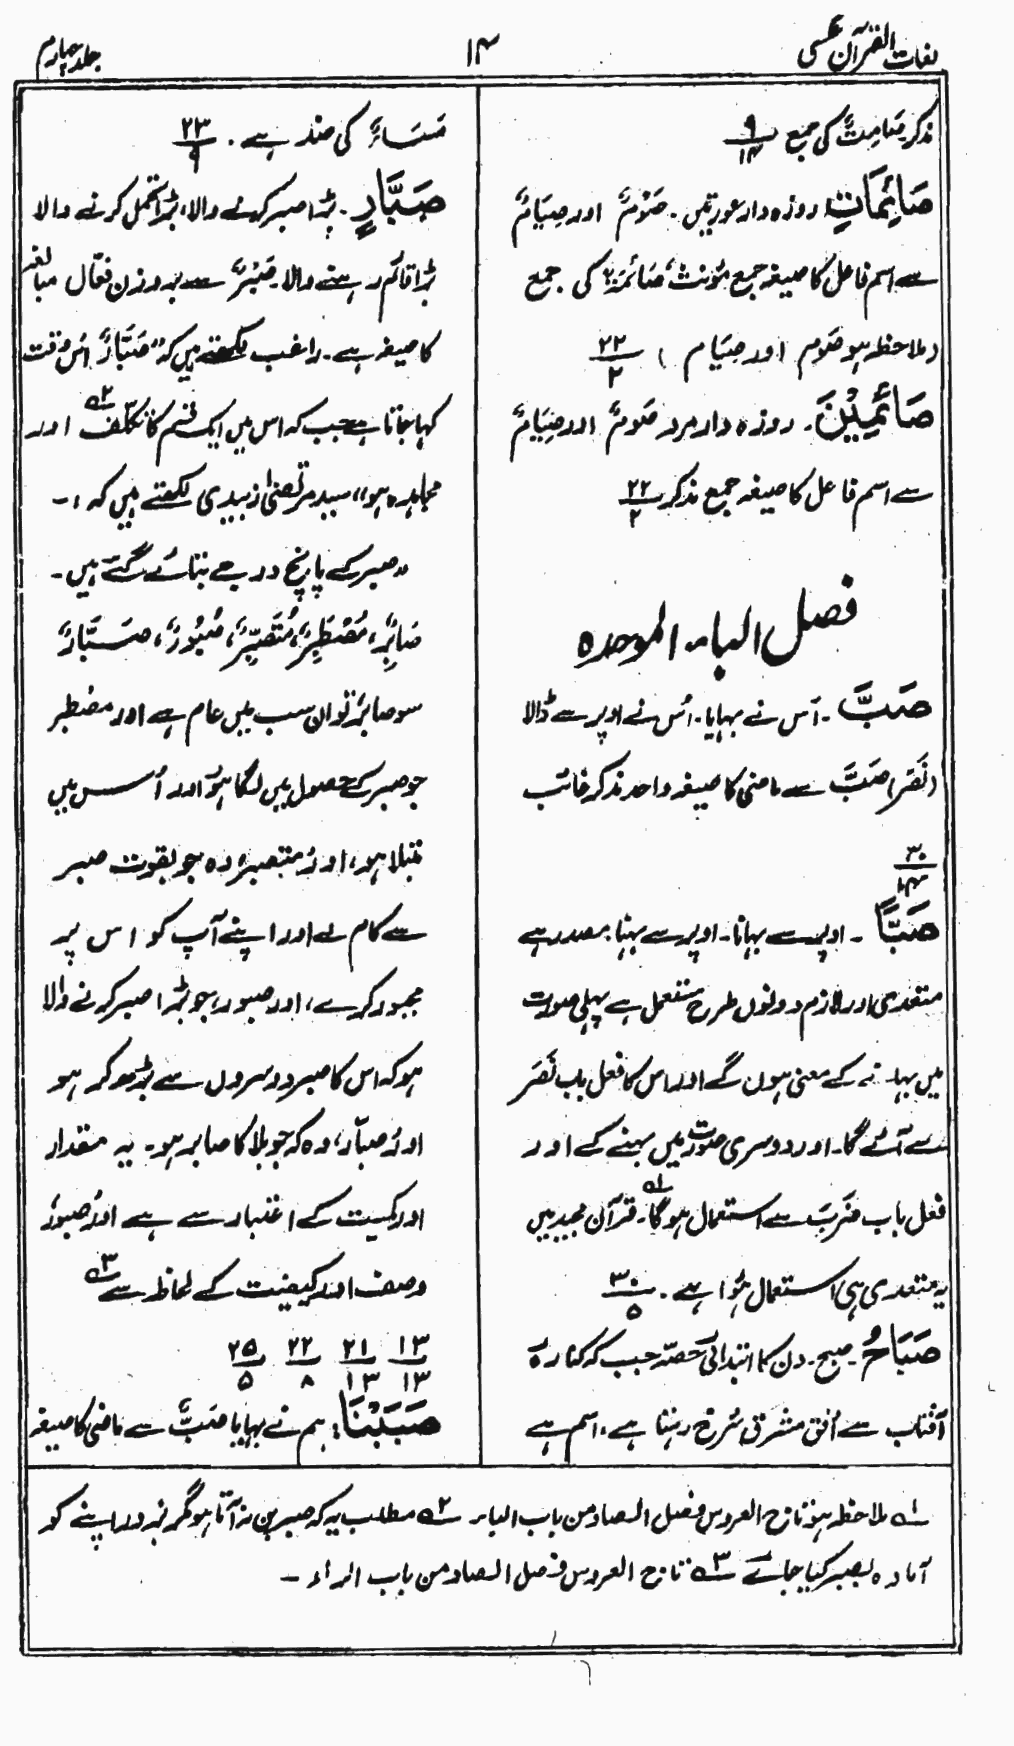 لغات القرآن عکسی
۱۴
جلد چہارم
مذکر صَامِتٌ کی جمع ۹/۱۴
صَائِمَاتٍ روزہ دار عورتیں۔ صَوْمٌ اور صِیَامٌ
سے اسم فاعل کا صیغہ جمع مؤنث صَائِمَۃٌ کی جمع
(ملاحظہ ہو صَوْم اور صِیَام) ۲۲/۲
صَائِمِیْنَ۔ روزہ دار مرد صَوْمٌ اور صِیَامٌ
سے اسم فاعل کا صیغہ جمع مذکر ۲۲/۲
فصل الباء الموحدہ
صَبَّ۔ اُس نے بہایا۔ اُس نے اوپر سے ڈالا
(نَصَرَ) صَبٌّ سے ماضی کا صیغہ واحد مذکر غائب
۳۰/۱۴
صَبًّا۔ اوپر سے بہانا۔ اوپر سے بہنا۔ مصدر ہے
متعدی اور لازم دونوں طرح مستعمل ہے پہلی صورت
میں بہانے کے معنی ہوں گے اور اس کا فعل باب نَصَرَ
سے آئے گا۔ اور دوسری صورت میں بہنے کے اور
فعل باب ضَرَبَ سے استعمال ہوگا۔ ۱؎ قرآن مجید میں
یہ متعدی ہی استعمال ہوا ہے۔ ۳۰/۵
صَبَاحُ۔ صبح۔ دن کا ابتدائی حصہ جب کہ کنارہ
آفتاب سے اُفق مشرق سُرخ رہتا ہے، اسم ہے
مَسَاءٌ کی ضد ہے۔ ۲۳/۹
صَبَّارٍ۔ بڑا صبر کرنے والا، بڑا تحمل کرنے والا
بڑا قائم رہنے والا۔ صَبْرٌ سے بروزن فعّال مبالغہ
کا صیغہ ہے۔ راغب لکھتے ہیں کہ "صَبَّارٌ اُس وقت
کہا جاتا ہے جب کہ اس میں ایک قسم کا تکلّف ۲؎ اور
مجاہدہ ہو" سید مرتضیٰ زبیدی لکھتے ہیں کہ :۔
"صبر کے پانچ درجے بتائے گئے ہیں۔
صَابِرٌ، مُصْطَبِرٌ، مُتَصَبِّرٌ، صَبُوْرٌ، صَبَّارٌ
سو صابر تو ان سب میں عام ہے اور مصطبر
جو صبر کے حصول میں لگا ہو اور اُس میں
مبتلا ہو، اور متصبر وہ جو بقوت صبر
سے کام لے اور اپنے آپ کو اس پر
مجبور کرے، اور صبور، جو بڑا صبر کرنے والا
ہو کہ اس کا صبر دوسروں سے بڑھ کر ہو
اور صبّار، وہ کہ جو بلا کا صابر ہو۔ یہ مقدار
اور کمیت کے اعتبار سے ہے اور صبور
وصف اور کیفیت کے لحاظ سے ۳؎
۱۳/۱۳ ۲۱/۱۳ ۲۲/۸ ۲۵/۵
صَبَبْنَا: ہم نے بہایا صَبٌّ سے ماضی کا صیغہ
۱؎ ملاحظہ ہو تاج العروس فصل الصاد من باب الباء ۲؎ مطلب یہ کہ صبر بن نہ آتا ہو مگر بزور اپنے کو
آمادہ بصبر کیا جائے ۳؎ تاج العروس فصل الصاد من باب الراء۔